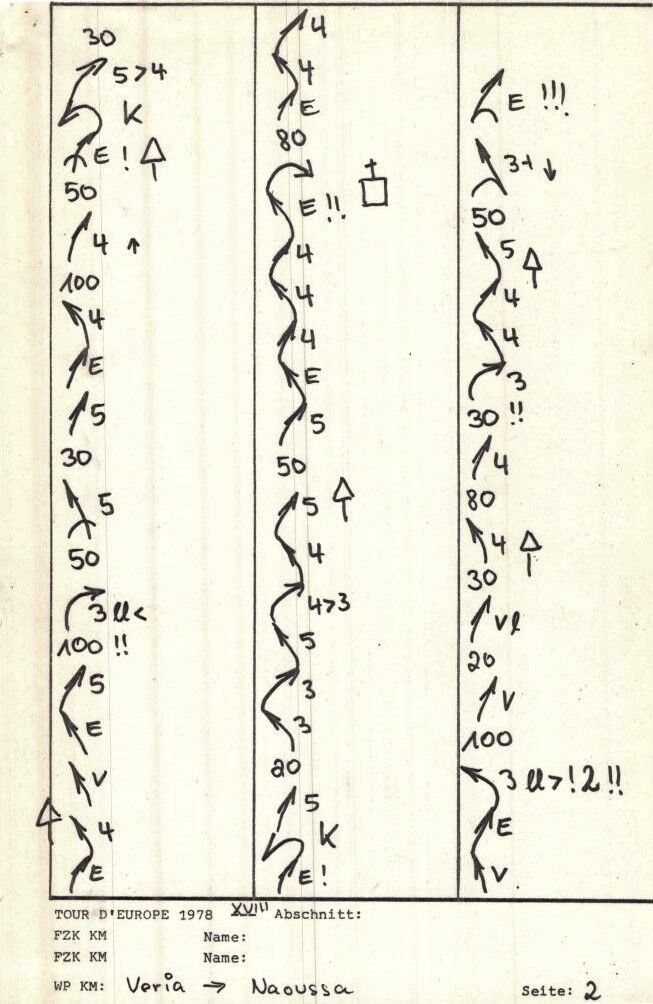 30
5>4
K
E !
50
4 ↑
100
4
E
5
30
5
50
3 ll <
100 !!
5
E
V
4
E
4
4
E
80
E !!
4
4
4
E
5
50
5
4
4>3
5
3
3
20
5
K
E !
E !!!
3+ ↓
50
5
4
4
3
30 !!
4
80
4
30
Vl
20
V
100
3 ll > ! 2 !!
E
V
TOUR D'EUROPE 1978 XVIII Abschnitt:
FZK KM Name:
FZK KM Name:
WP KM: Veria → Naoussa Seite: 2